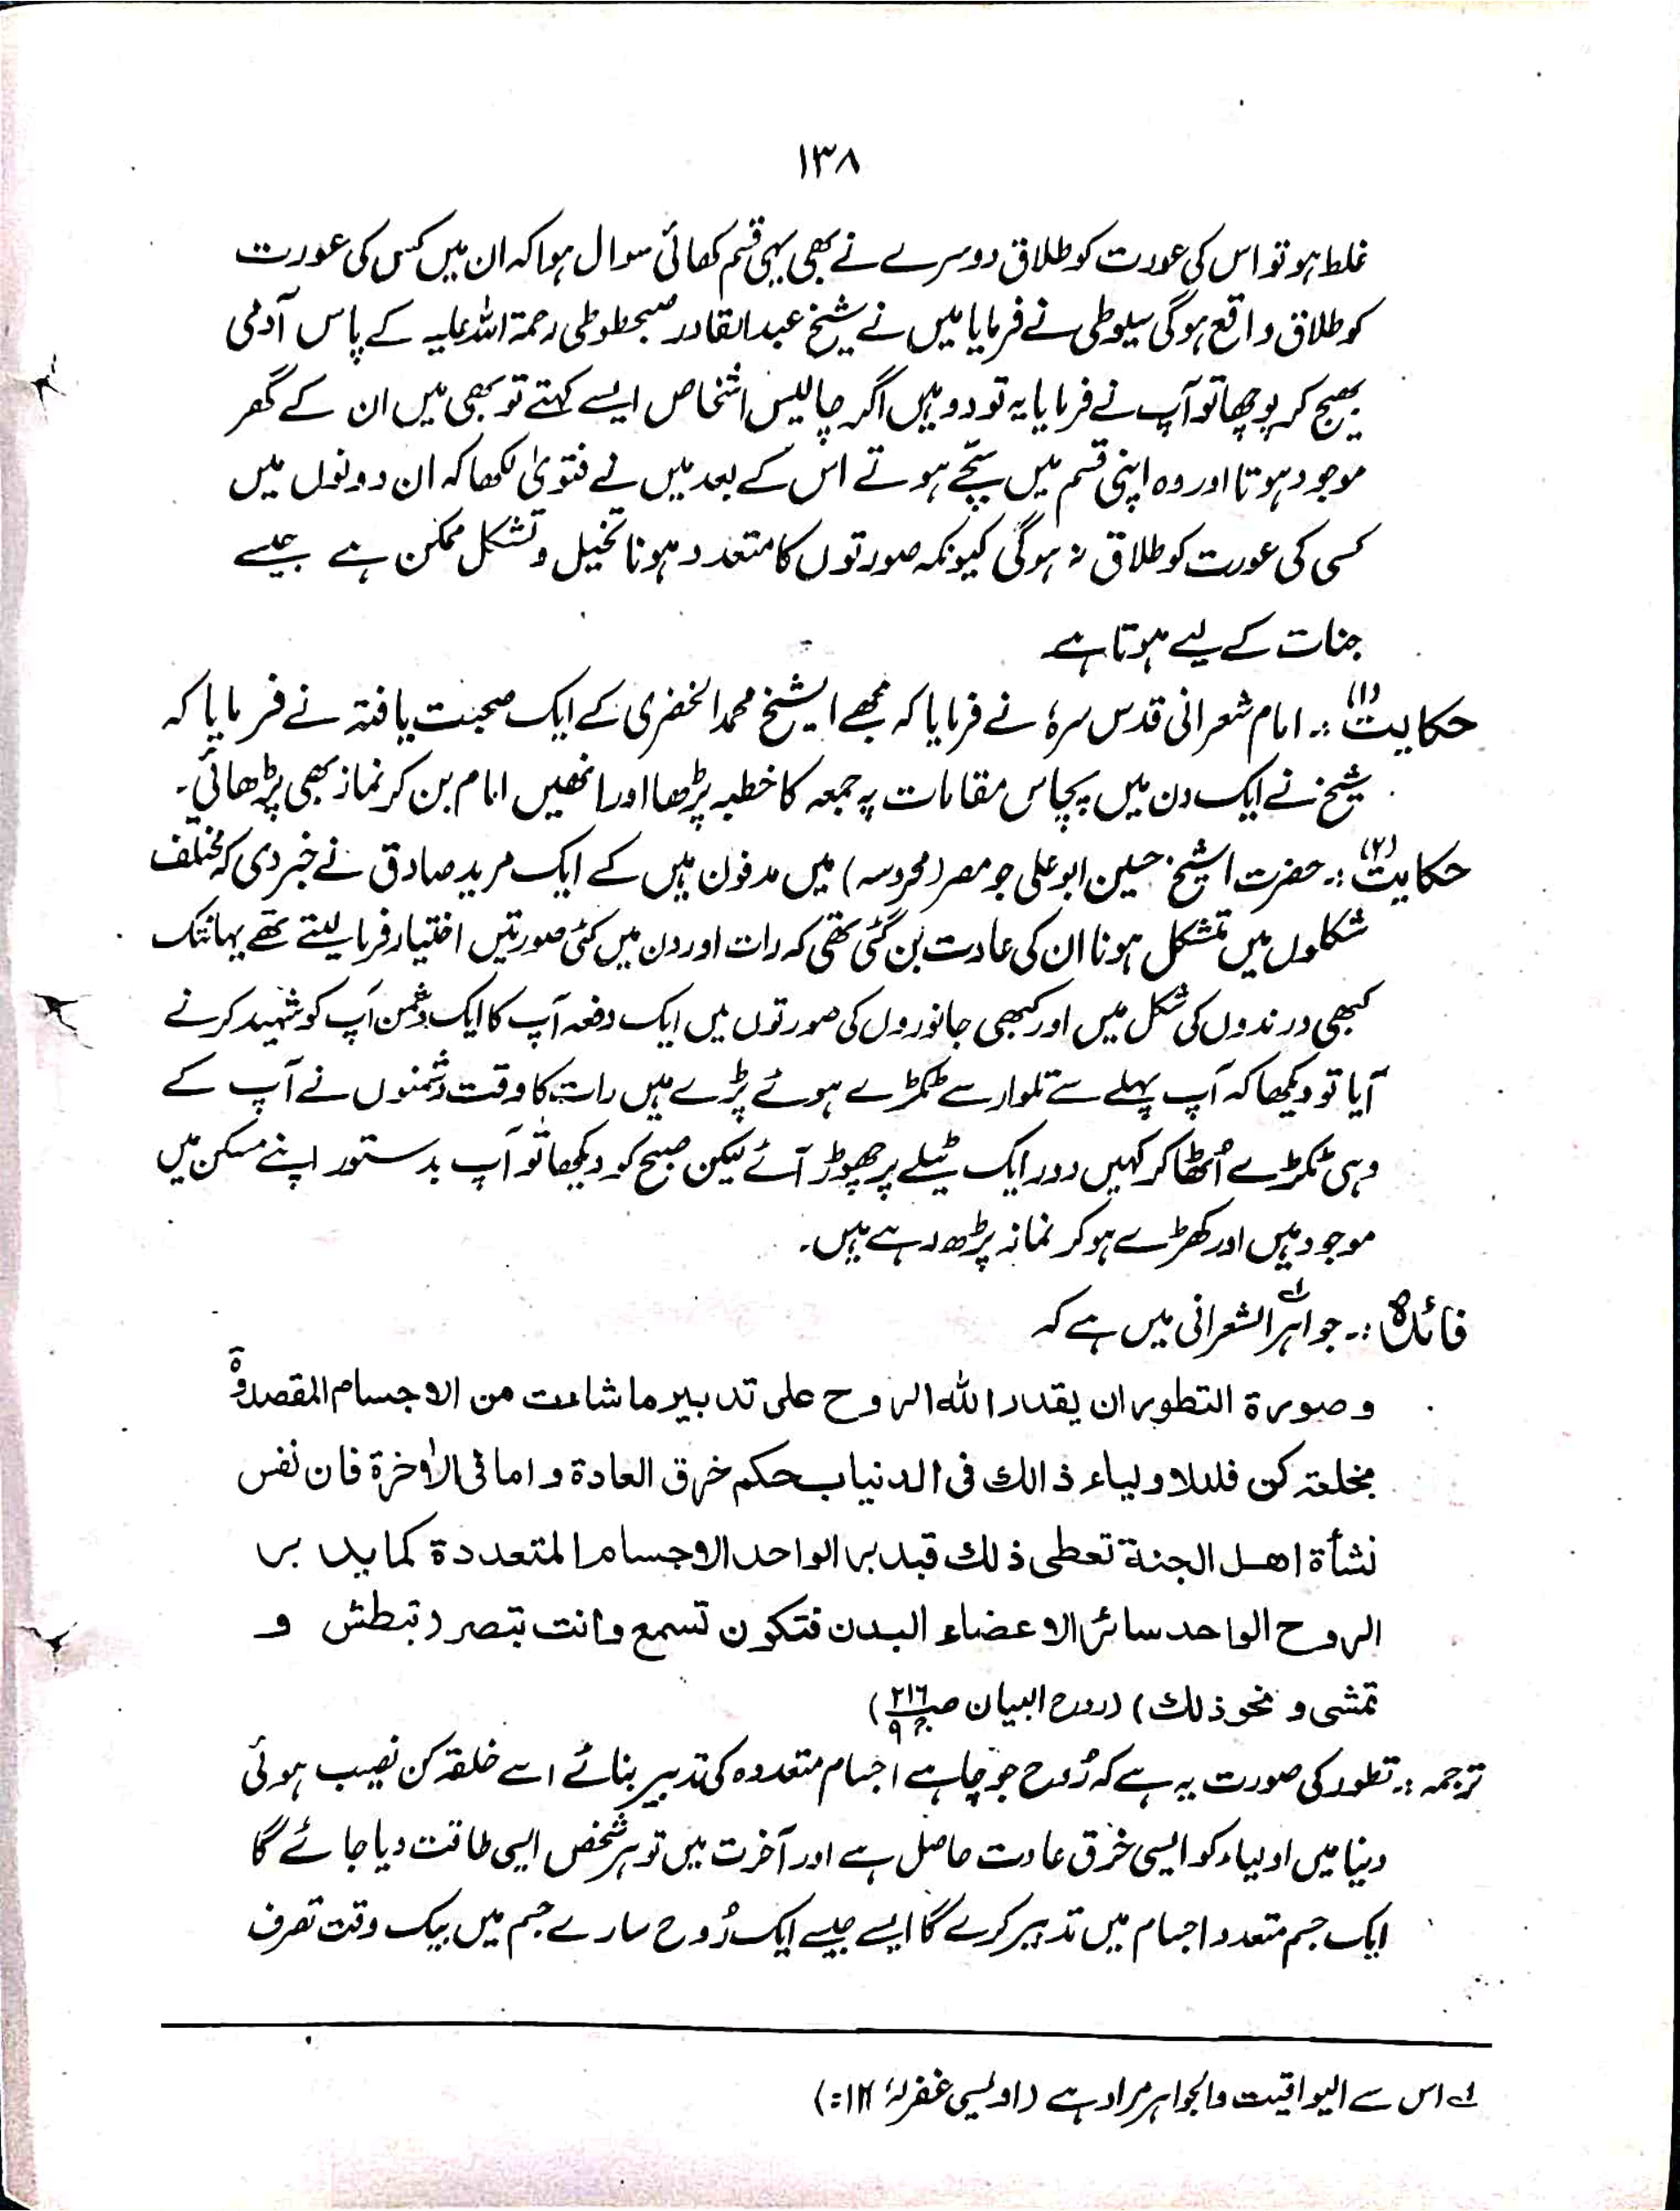 ۱۳۸
غلط ہو تو اس کی عورت کو طلاق دوسرے نے بھی یہی قسم کھائی سوال ہوا کہ ان میں کس کی عورت
کو طلاق واقع ہوگی سیوطی نے فرمایا میں نے شیخ عبدالقادر صبحطوطی رحمۃ اللہ علیہ کے پاس آدمی
بھیج کر پوچھا تو آپ نے فرمایا یہ تو دو ہیں اگر چالیس اشخاص ایسے کہتے تو بھی میں ان کے گھر
موجود ہوتا اور وہ اپنی قسم میں سچّے ہوتے اس کے بعد میں نے فتویٰ لکھا کہ ان دونوں میں
کسی کی عورت کو طلاق نہ ہوگی کیونکہ صورتوں کا متعدد ہونا تخیل و تشکل ممکن ہے جیسے
جنات کے لیے ہوتا ہے
حکایت (۱) :۔ امام شعرانی قدس سرہٗ نے فرمایا کہ مجھے الشیخ محمد الخضری کے ایک صحبت یافتہ نے فرمایا کہ
شیخ نے ایک دن میں پچاس مقامات پہ جمعہ کا خطبہ پڑھا اور انھیں امام بن کر نماز بھی پڑھائی۔
حکایت (۲) :۔ حضرت الشیخ حسین ابوعلی جو مصر (محروسہ) میں مدفون ہیں کے ایک مرید صادق نے خبر دی کہ مختلف
شکلوں میں تمشکل ہونا ان کی عادت بن گئی تھی کہ رات اور دن میں کئی صورتیں اختیار فرما لیتے تھے یہانتک
کبھی درندوں کی شکل میں اور کبھی جانوروں کی صورتوں میں ایک دفعہ آپ کا ایک دشمن آپ کو شہید کرنے
آیا تو دیکھا کہ آپ پہلے سے تلوار سے ٹکڑے ہوئے پڑے ہیں رات کا وقت دشمنوں نے آپ کے
وہی ٹکڑے اُٹھا کر کہیں دور ایک ٹیلے پر چھوڑ آئے لیکن صبح کو دیکھا تو آپ بدستور اپنے مسکن میں
موجود ہیں اور کھڑے ہو کر نماز پڑھ رہے ہیں۔
فائدہ :۔ جواہر الشعرانی لے میں ہے کہ
وصورۃ التطور ان یقدر اللہ الروح علی تدبیر ما شاءت من الاجسام المقصدۃ
بخلعۃ کن فللاولیاء ذالک فی الدنیا بحکم خرق العادۃ واما فی الاٰخرۃ فان نفس
نشأۃ اھل الجنۃ تعطی ذلک قیدبر الواحد الاجسام المتعددۃ کما یدبر
الروح الواحد سائر الاعضاء البدن فتکون تسمع وانت تبصر و تبطش و
تمشی و نحو ذلک) (روح البیان ص۲۱۶ ج۹)
ترجمہ :۔ تطور کی صورت یہ ہے کہ رُوح جو چاہے اجسام متعددہ کی تدبیر بنائے اسے خلقۃ کن نصیب ہوئی
دنیا میں اولیاء کو ایسی خرق عادت حاصل ہے اور آخرت میں تو ہر شخص ایسی طاقت دیا جائے گا
ایک جسم متعدد اجسام میں تدبیر کرے گا ایسے جیسے ایک رُوح سارے جسم میں بیک وقت تصرف
لے اس سے الیواقیت والجواہر مراد ہے (اویسی غفرلہٗ ۱۲:)